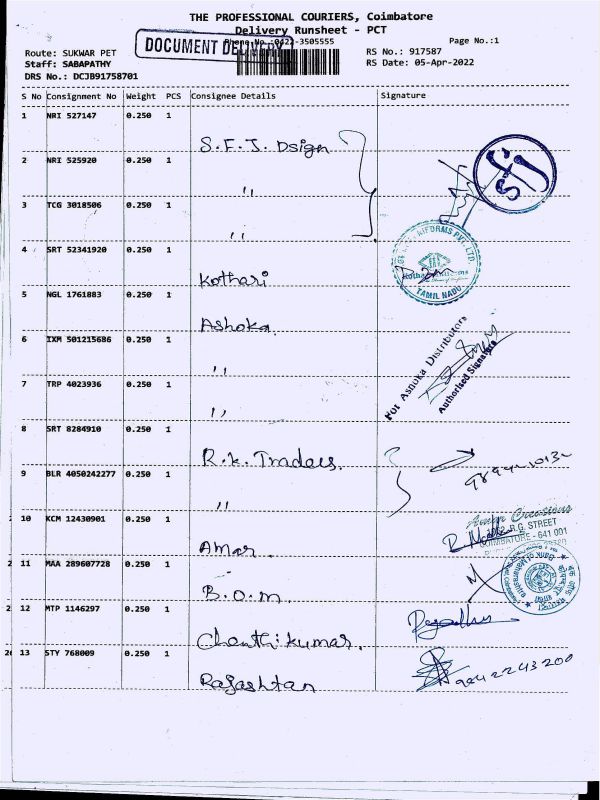 THE PROFESSIONAL COURIERS, Coimbatore
Delivery Runsheet - PCT
Phone No.:0422-3505555 Page No.:1
DOCUMENT DELIVERY
Route: SUKWAR PET RS No.: 917587
Staff: SABAPATHY RS Date: 05-Apr-2022
DRS No.: DCJB91758701
S No Consignment No Weight PCS Consignee Details Signature
1 NRI 527147 0.250 1
S.F.J. Dsign
2 NRI 525920 0.250 1
"
sfj
3 TCG 3018506 0.250 1
"
4 SRT 52341920 0.250 1
Kothari
TAMIL NADU
5 NGL 1761883 0.250 1
Ashoka
6 IXM 501215686 0.250 1
"
For Ashoka Distributors
Authorised Signature
7 TRP 4023936 0.250 1
"
8 SRT 8284910 0.250 1
R.K. Traders.
9 BLR 4050242277 0.250 1
"
10 KCM 12430901 0.250 1
Amar.
Amar Creations
R.G. STREET
COIMBATORE - 641 001
11 MAA 289607728 0.250 1
B.O.M
12 MTP 1146297 0.250 1
Chanthikumar.
13 STY 768009 0.250 1
Rajashtan
9442243200